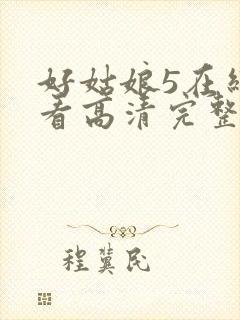 好姑娘5在线
看高清完整
程冀民